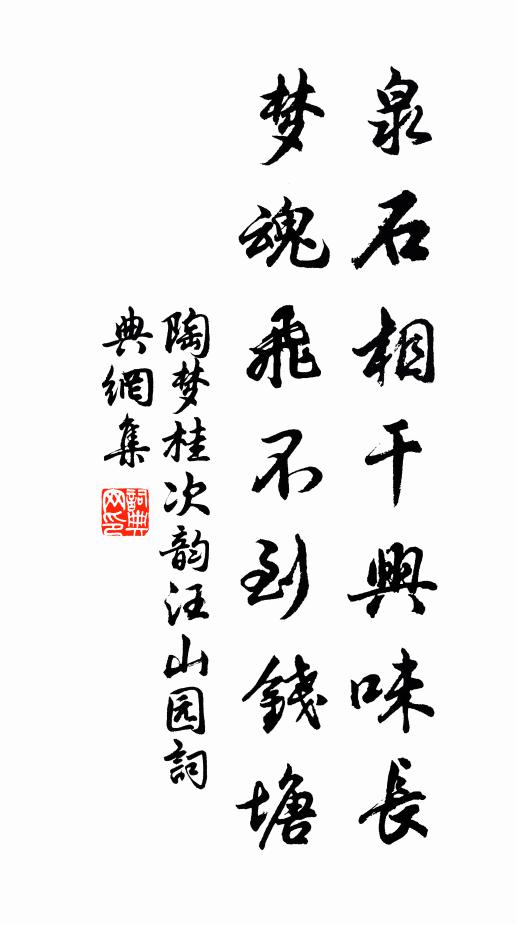 泉石相干興味長
梦魂飛不到錢塘
陶梦桂次韵汪山园詞
典網集
詞典网印